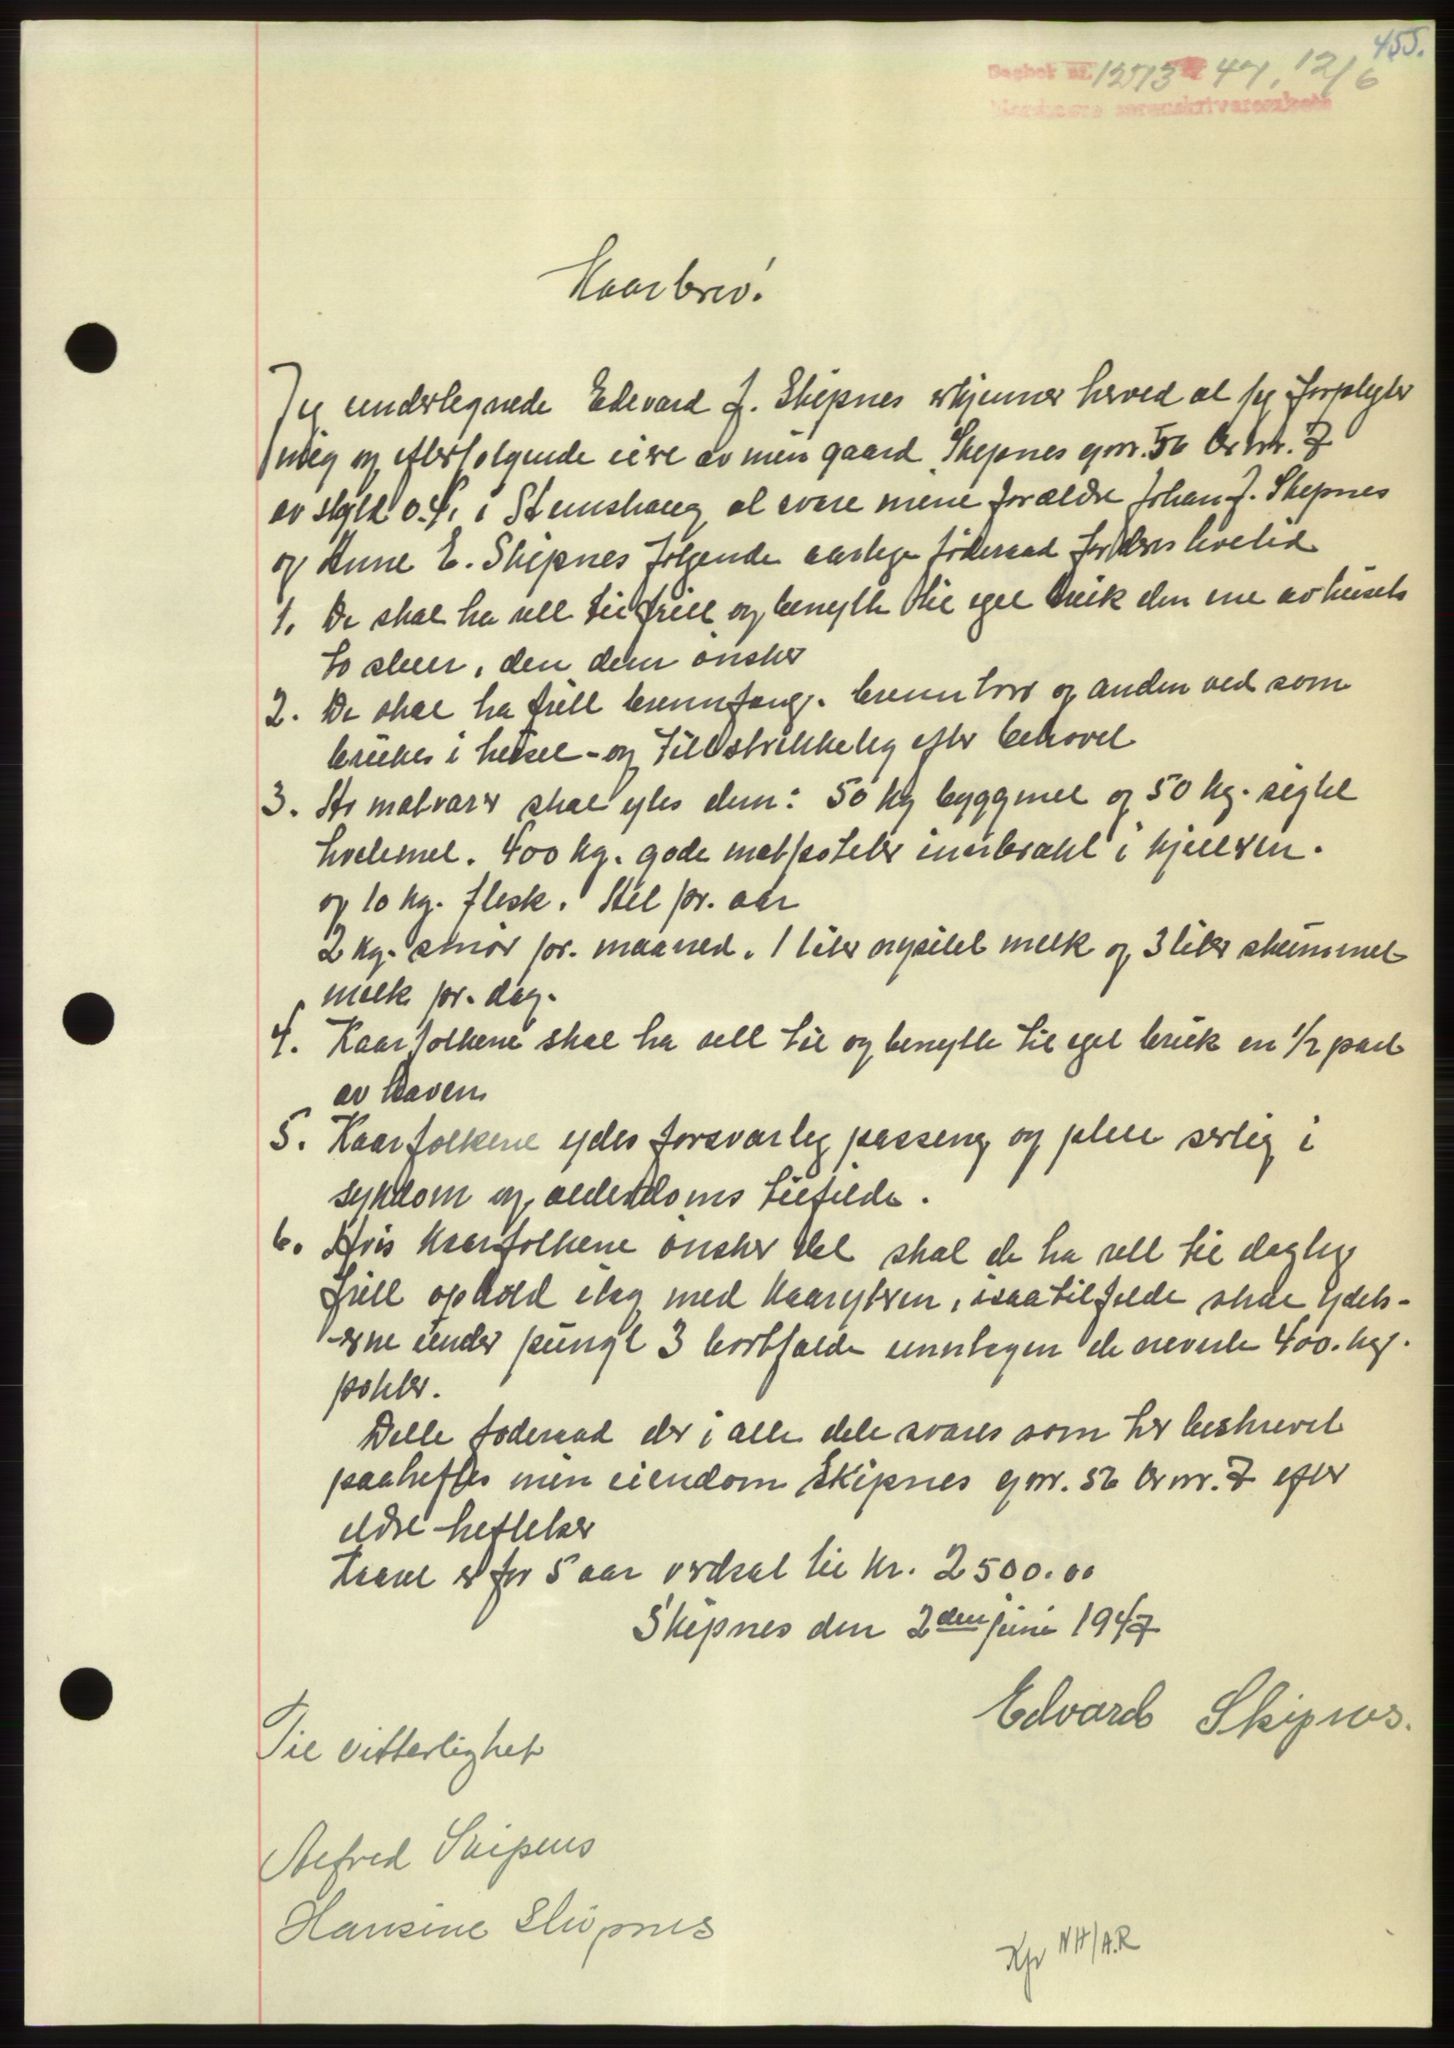 455.
Dagbok nr. 1273 47. 12/6
Nordmøre sorenskriverembete
Kaarbrev!
Jeg undertegnede Edevard J. Skipnes erkjenner herved at jeg forplegter
mig og efterfølgende eiere av min gaard Skipnes gnr. 56 Brnr. 7
av skyld 0.4. i Stemshaug at svare mine forældre Johan J. Skipnes
og Anne E. Skipnes følgende aarlige føderaad for deres livetid
1. De skal ha rett til fritt og benytte til eget bruk den ene av husets
to stuer, den dem ønsker
2. De skal ha fritt brennfang. brenntorv og anden ved som
brukes i huset - og tilstrekkelig efter behovet
3. Av matvarer skal ytes dem: 50 kg byggmel og 50 kg. siglet
hvetemel. 400 kg. gode matpoteter innbrakt i kjelleren.
og 10 kg. flesk. Alt pr. aar
2 kg. smør pr. maaned. 1 liter nysilet melk og 3 liter skummet
melk pr. dag.
4. Kaarfolkene skal ha rett til og benytte til eget bruk en 1/2 part
av haven
5. Kaarfolkene ydes forsvarlig passing og pleie serlig i
sykdom og alderdoms tilfelde.
6. Hvis kaarfolkene ønsker det skal de ha rett til daglig
fritt ophold ilag med kaaryteren, isaatilfelde skal ydels-
-erne under pungt 3 bortfalde unntagen de nevnte 400. kg.
poteter.
Dette føderaad der i alle dele svares som her beskrevet
paaheftes min eiendom Skipnes gnr. 56 Brnr. 7 efter
eldre heftelser
Kaaret er for 5 aar verdsat til kr. 2500.00
Skipnes den 2den juni 1947
Edvard Skipnes.
Til vitterlighet
Alfred Skipnes
Hansine Skipnes
Kjr NH/A.R